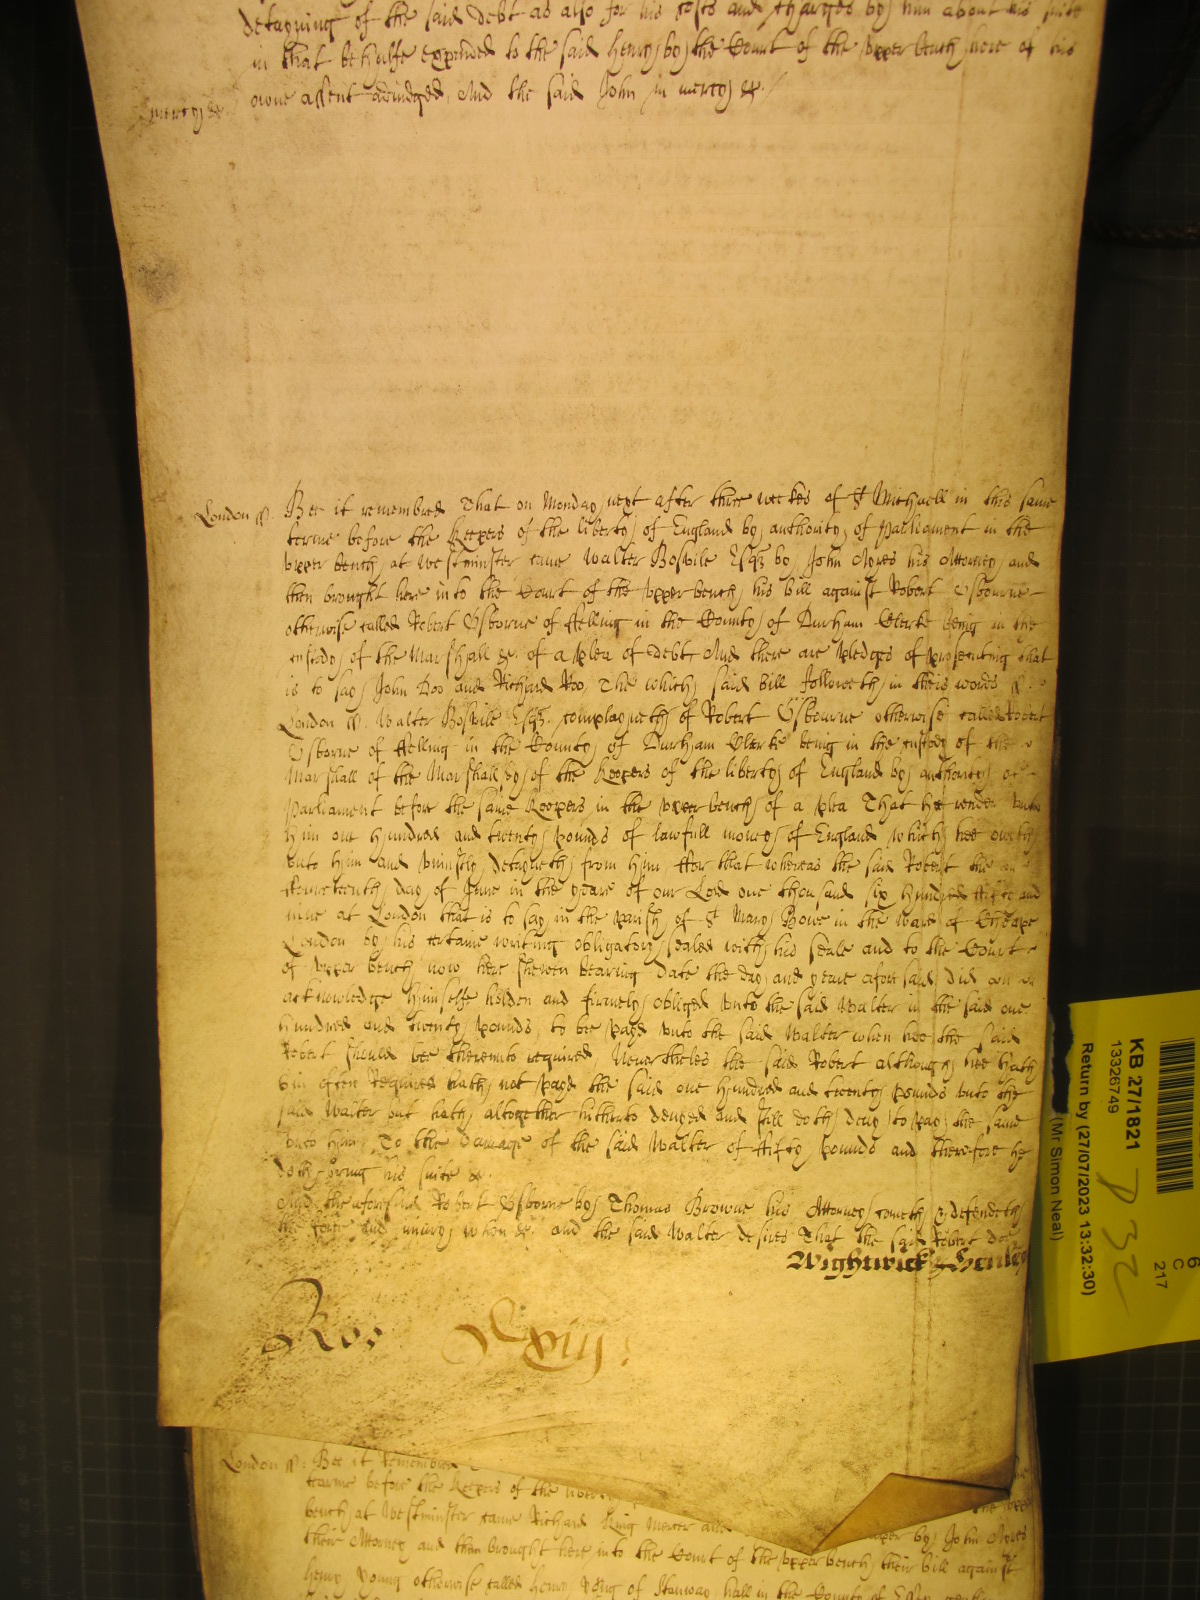 detayning of the said debt as also for his costs and charges by him about his suite
in that behalfe expended to the said Henry by the Court of the upper bench here of his
owne assent adiudged, And the said John in mercy &c.
mercy &c
London ss. Bee it remembred That on Monday next after three weekes of St Michaell in this same
terme before the Keepers of the liberty of England by authority of Parliament in the
upper bench at Westminster came Walter Bosvile Esqr by John Ayres his Attorney and
then brought here into the Court of the upper bench his bill against Robert Osbourne
otherwise called Robert Osborne of Felling in the County of Durham Clerke being in the
custody of the Marshall &c of a plea of debt And there are pledges of prosecuting that
is to say John Doo and Richard Roo, The which said bill followeth in theis words ss.
London ss. Walter Bosvile Esqr. complayneth of Robert Osbourne otherwise called Robert
Osborne of Felling in the County of Durham Clerke being in the custody of the
Marshall of the Marshallsey of the Keepers of the liberty of England by authority of
Parliament before the same Keepers in the upper bench of a plea That he render unto
him one hundred and twenty pounds of lawfull money of England which hee oweth
unto him and uniustly detayneth from him ffor that whereas the said Robert the
fourteenth day of June in the yeare of our Lord one thousand six hundred fifty and
nine at London that is to say in the parish of St Mary Bowe in the ward of Cheape
London by his certaine writing obligatory sealed with his seale and to the Court
of upper bench now here shewen bearing date the day and yeare aforesaid did
acknowledge himselfe holden and firmely obliged unto the said Walter in the said one
hundred and twenty pounds, to bee payd unto the said Walter when hee the said
Robert should bee thereunto required Neverthelesse the said Robert although hee hath
bin often Required hath not payd the said one hundred and twenty pounds unto the
said Walter but hath altogether hitherto denyed and still doth deny to pay the same
unto him, To the damage of the said Walter of fifty pounds and therefore he
doth bring his suite &c
And the aforesaid Robert Osborne by Thomas Browne his Attorney cometh & defendeth
the force and iniury when &c. and the said Walter desires That the said Robert doe
Wightwick Henley
Roo
London ss: Bee it Remembred
tearme before the Keepers of the liberty
bench at Westminster came Richard King Mercer and
by John Ayres
their Attorney and then brought here into the Court of the upper bench their bill against
Henry Young otherwise called Henry Young of hall in the County of
KB 27/1821
13326749
Return by (27/07/2023 13:32:30)
(Mr Simon Neal)
6
C
217